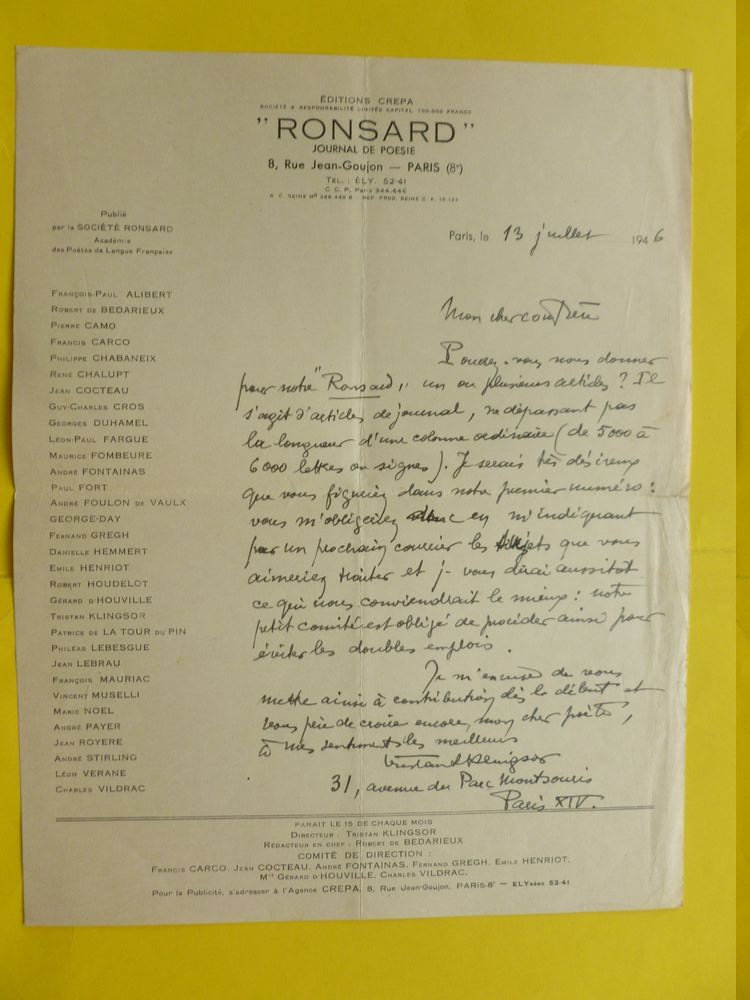 ÉDITIONS CREPA
SOCIÉTÉ A RESPONSABILITÉ LIMITÉE CAPITAL 700.000 FRANCS
" RONSARD "
JOURNAL DE POESIE
8, Rue Jean-Goujon — PARIS (8e)
TEL. : ÉLY. 52-41
C. C. P. Paris
Publié
par la SOCIÉTÉ RONSARD
Académie
des Poètes de Langue Française
Paris, le 13 juillet 1946
FRANÇOIS-PAUL ALIBERT
ROBERT DE BEDARIEUX
PIERRE CAMO
FRANCIS CARCO
PHILIPPE CHABANEIX
RENÉ CHALUPT
JEAN COCTEAU
GUY-CHARLES CROS
GEORGES DUHAMEL
LÉON-PAUL FARGUE
MAURICE FOMBEURE
ANDRÉ FONTAINAS
PAUL FORT
ANDRÉ FOULON DE VAULX
GEORGE-DAY
FERNAND GREGH
DANIELLE HEMMERT
EMILE HENRIOT
ROBERT HOUDELOT
GÉRARD D'HOUVILLE
TRISTAN KLINGSOR
PATRICE DE LA TOUR DU PIN
PHILÉAS LEBESGUE
JEAN LEBRAU
FRANÇOIS MAURIAC
VINCENT MUSELLI
MARIE NOEL
ANDRÉ PAYER
JEAN ROYERE
ANDRÉ STIRLING
LÉON VERANE
CHARLES VILDRAC
Mon cher confrère
Pouvez-vous nous donner
pour notre "Ronsard", un ou plusieurs articles ? Il
s'agit d'articles de journal, ne dépassant pas
la longueur d'une colonne ordinaire (de 5000 à
6000 lettres ou signes). Je serais très désireux
que vous figuriez dans notre premier numéro :
vous m'obligeriez donc en m'indiquant
par un prochain courrier les sujets que vous
aimeriez traiter et je vous dirai aussitôt
ce qui nous conviendrait le mieux : notre
petit comité est obligé de procéder ainsi pour
éviter les doubles emplois.
Je m'excuse de vous
mettre ainsi à contribution dès le début et
vous prie de croire encore, mon cher poète,
à mes sentiments les meilleurs
Tristan Klingsor
31, avenue du Parc Montsouris
Paris XIV.
PARAIT LE 15 DE CHAQUE MOIS
DIRECTEUR : TRISTAN KLINGSOR
RÉDACTEUR EN CHEF : ROBERT DE BEDARIEUX
COMITÉ DE DIRECTION :
FRANCIS CARCO, JEAN COCTEAU, ANDRÉ FONTAINAS, FERNAND GREGH, EMILE HENRIOT,
Mme GÉRARD D'HOUVILLE, CHARLES VILDRAC.
Pour la Publicité, s'adresser à l'Agence CREPA, 8, Rue Jean-Goujon, PARIS-8e — ELYsées 52-41